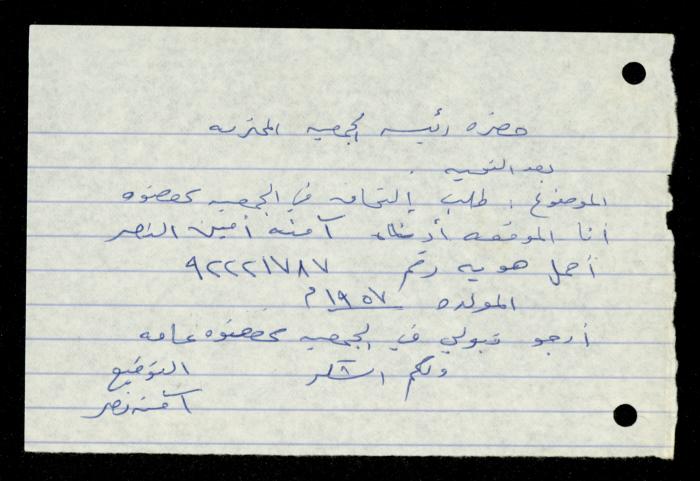 حضرة رئيسة الجمعية المحترمه
بعد التحيه .
الموضوع : طلب إلتحاق في الجمعيه كعضوه
أنا الموقعه أدناه آمنه أمين النصر
أحمل هويه رقم ٩٢٢٢١٧٨٧
المولده ١٩٥٧ م
أرجو قبولي في الجمعيه كعضوه عامه
ولكم الشكر التوقيع
آمنه نصر